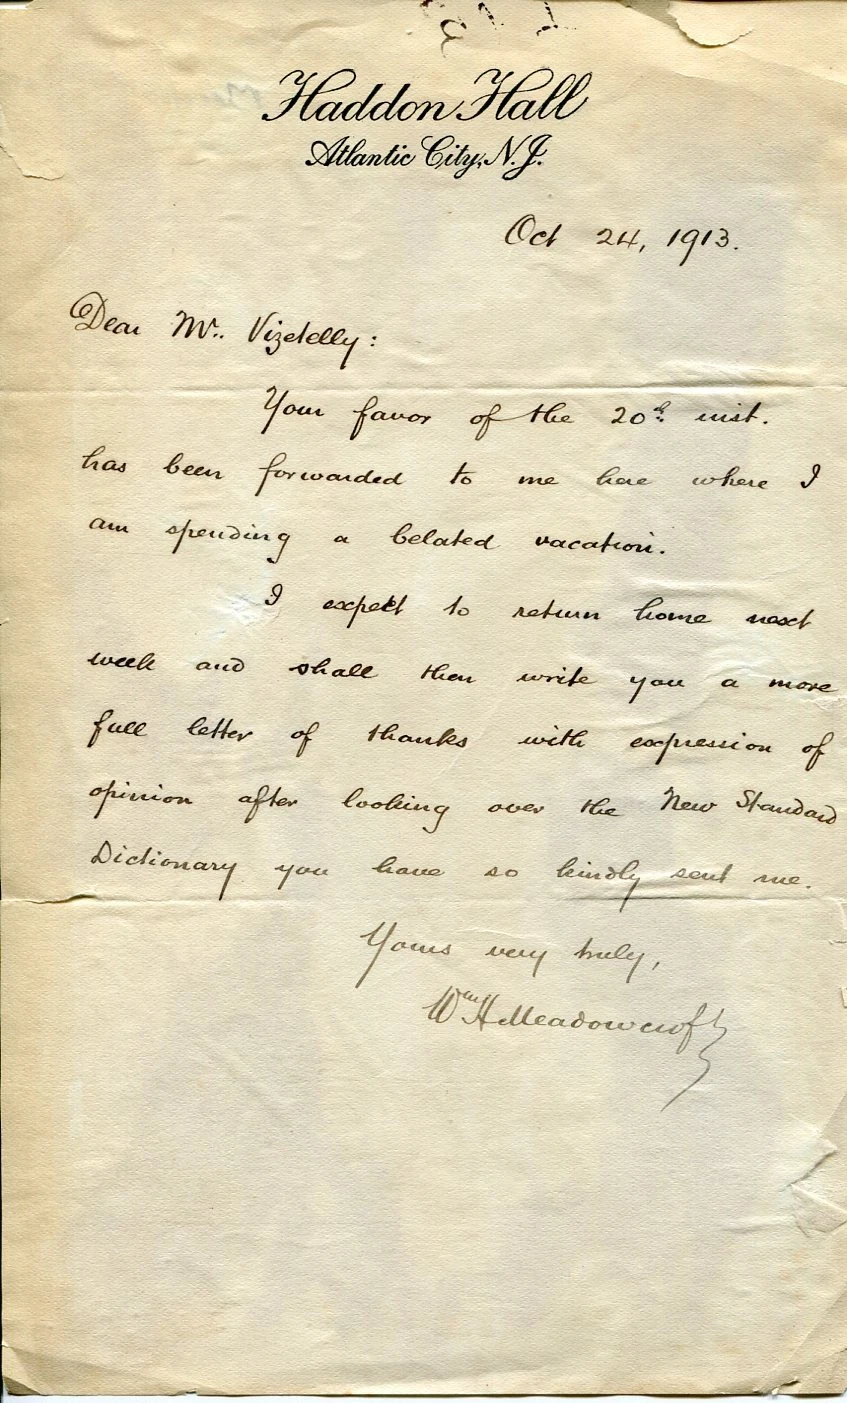 Haddon Hall
Atlantic City, N.J.
Oct 24, 1913.
Dear Mr. Vizetelly:
Your favor of the 20th inst.
has been forwarded to me here where I
am spending a belated vacation.
I expect to return home next
week and shall then write you a more
full letter of thanks with expression of
opinion after looking over the New Standard
Dictionary you have so kindly sent me.
Yours very truly,
Wm H Meadowcroft